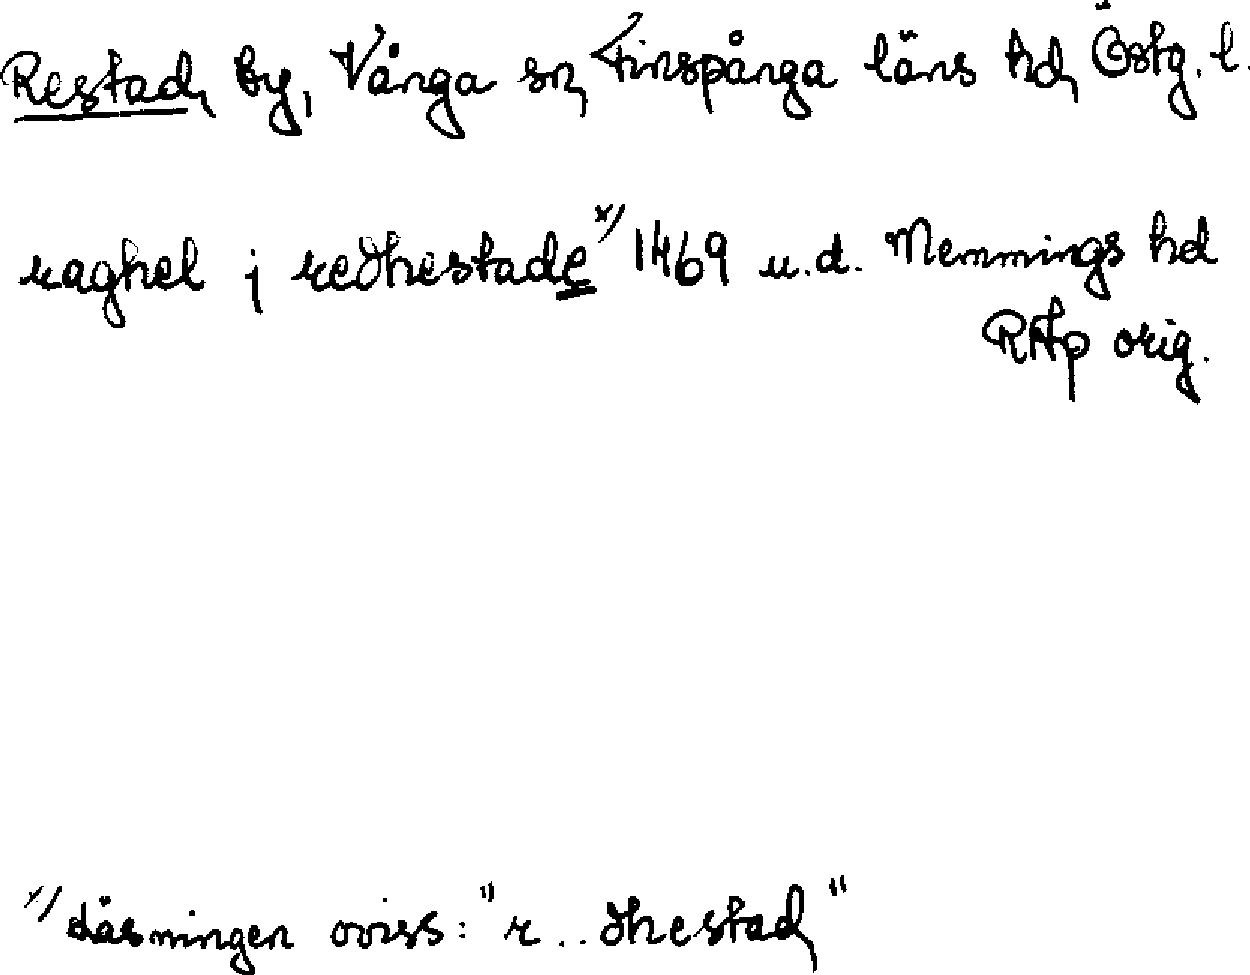 Restad, by, Vånga sn, Finspånga läns hd, Östg. l.
raghel j redhestade x) 1469 u.d. Memmings hd
RAp orig.
x) Läsningen oviss: "r .. dhestad"